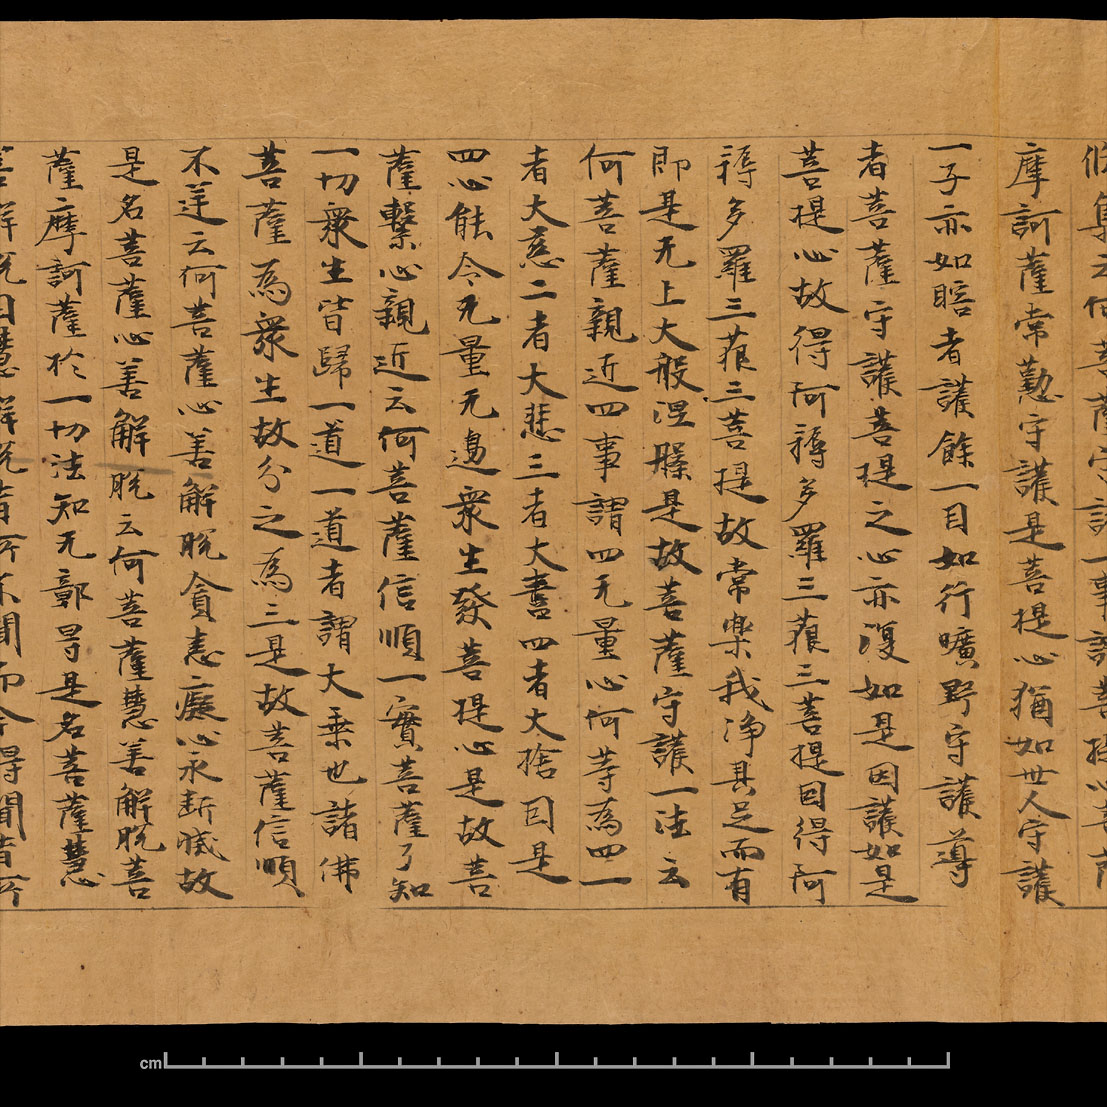 修集云何菩薩守護一事謂菩提心菩薩
摩訶薩常懃守護是菩提心猶如世人守護
一子亦如瞎者護餘一目如行曠野守護導
者菩薩守護菩提之心亦復如是因護如是
菩提心故得阿耨多羅三藐三菩提因得阿
耨多羅三藐三菩提故常樂我淨具足而有
即是无上大般涅槃是故菩薩守護一法云
何菩薩親近四事謂四无量心何等為四一
者大慈二者大悲三者大喜四者大捨因是
四心能令无量无邊衆生發菩提心是故菩
薩繫心親近云何菩薩信順一實菩薩了知
一切衆生皆歸一道一道者謂大乗也諸佛
菩薩為衆生故分之為三是故菩薩信順
不逆云何菩薩心善解脫貪恚癡心永斷滅故
是名菩薩心善解脫云何菩薩慧善解脫菩
薩摩訶薩於一切法知无鄣导是名菩薩慧
善解脫因慧解脫昔所不聞而今得聞昔所